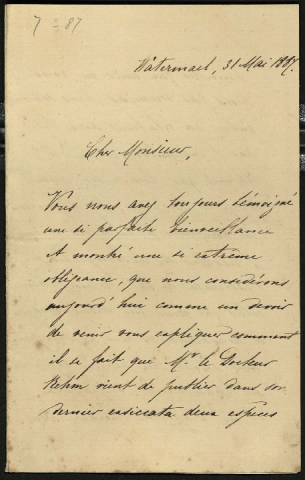 7 = 87
Watermael, 31 Mai 1887.
Cher Monsieur,
Vous nous avez toujours témoigné
une si parfaite bienveillance
et montré une si extrême
obligeance, que nous considérons
aujourd'hui comme un devoir
de venir vous expliquer comment
il se fait que Mr le Docteur
Rehm vient de publier dans son
dernier exsiccata deux espèces